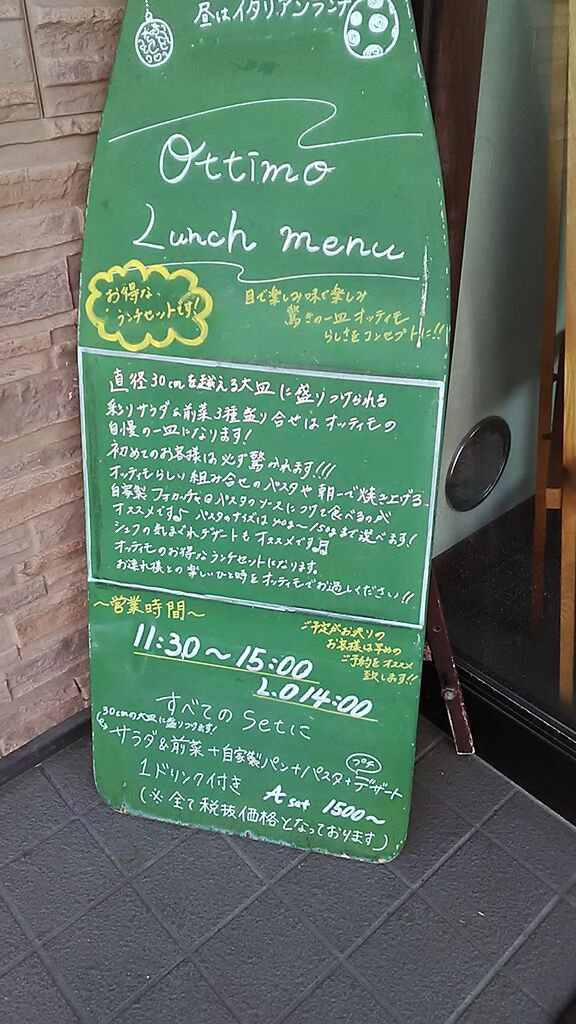 昼はイタリアンランチ
Ottimo
Lunch menu
お得な
ランチセットです!
目で楽しみ味で楽しみ
驚きの一皿オッティモ
らしさをコンセプトに!!
直径30cmを越える大皿に盛りつけられる
彩りサラダ&前菜3種盛り合せはオッティモの
自慢の一皿になります!
初めてのお客様は必ず驚かれます!!!
オッティモらしい組み合せのパスタや朝一で焼き上げる
自家製フォカッチャ@パスタのソースにつけて食べるのが
オススメです♪ パスタのサイズは40g~150gまで選べます!
シェフの気まぐれデザートもオススメです♫
オッティモのお得なランチセットになります。
お連れ様との楽しいひと時をオッティモでお過しください!!
~営業時間~
11:30~15:00
L.O 14:00
ご予定がお決りの
お客様は早めの
ご予約をオススメ
致します!!
すべてのsetに
30cmの大皿に盛りつけます!
サラダ&前菜+自家製パン+パスタ+プチデザート
1ドリンク付き
A set 1500~
(※全て税抜価格となっております)